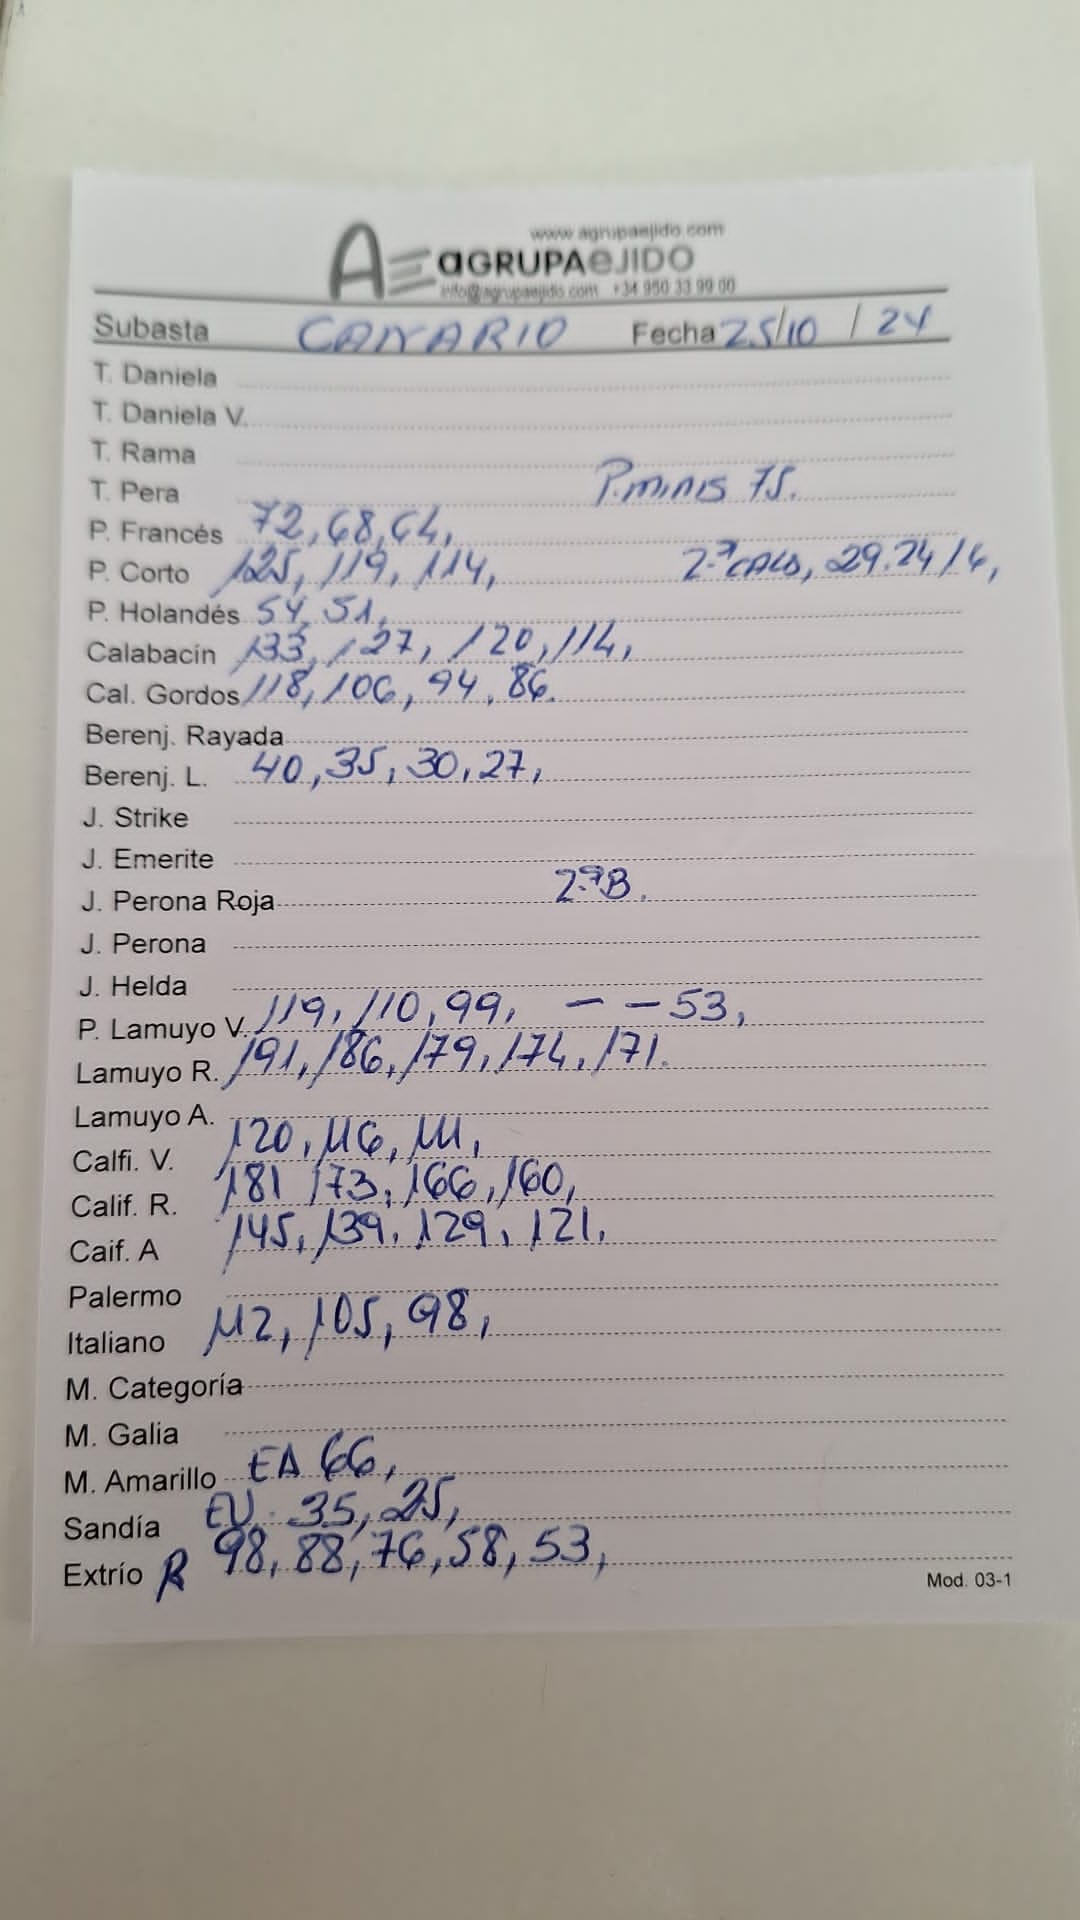 www.agrupaejido.com
AE aGRUPAeJIDO
info@agrupaejido.com +34 950 33 99 00
Subasta CANARIO Fecha 25/10 / 24
T. Daniela
T. Daniela V.
T. Rama
T. Pera P.minis 75.
P. Francés 72, 68, 64,
P. Corto 125, 119, 114, 2.ª CALD, 29.24/6,
P. Holandés 54, 51,
Calabacín 133, 127, 120, 114,
Cal. Gordos 118, 106, 94, 86.
Berenj. Rayada
Berenj. L. 40, 35, 30, 27,
J. Strike
J. Emerite
J. Perona Roja 2.ªB.
J. Perona
J. Helda
P. Lamuyo V. 119, 110, 99, - - 53,
Lamuyo R. 191, 186, 179, 174, 171.
Lamuyo A.
Calfi. V. 120, 116, 111,
Calif. R. 181 173, 166, 160,
Caif. A 145, 139, 129, 121.
Palermo
Italiano 112, 105, 98,
M. Categoría
M. Galia
M. Amarillo EA 66,
Sandía EV. 35, 25,
Extrío R 98, 88, 76, 58, 53,
Mod. 03-1